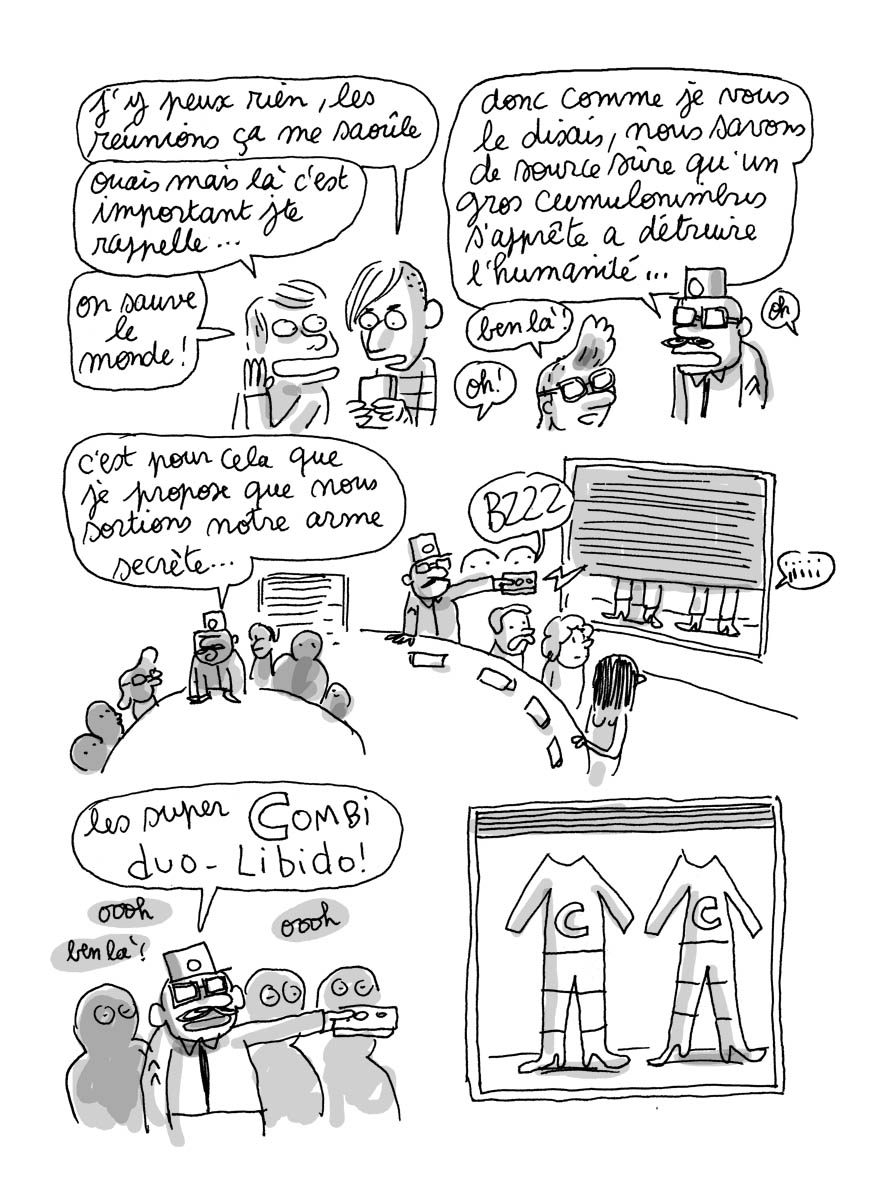 j'y peux rien, les
réunions ça me saoûle
ouais mais là c'est
important jte
rappelle...
on sauve
le
monde!
donc comme je vous
le disais, nous savons
de source sûre qu'un
gros cumulonimbus
s'apprête a détruire
l'humanité...
ben là!
oh!
oh
c'est pour cela que
je propose que nous
sortions notre arme
secrète...
BZZZ
!!!!!
les super COMBI
duo-Libido!
oooh
ben là!
oooh
C
C